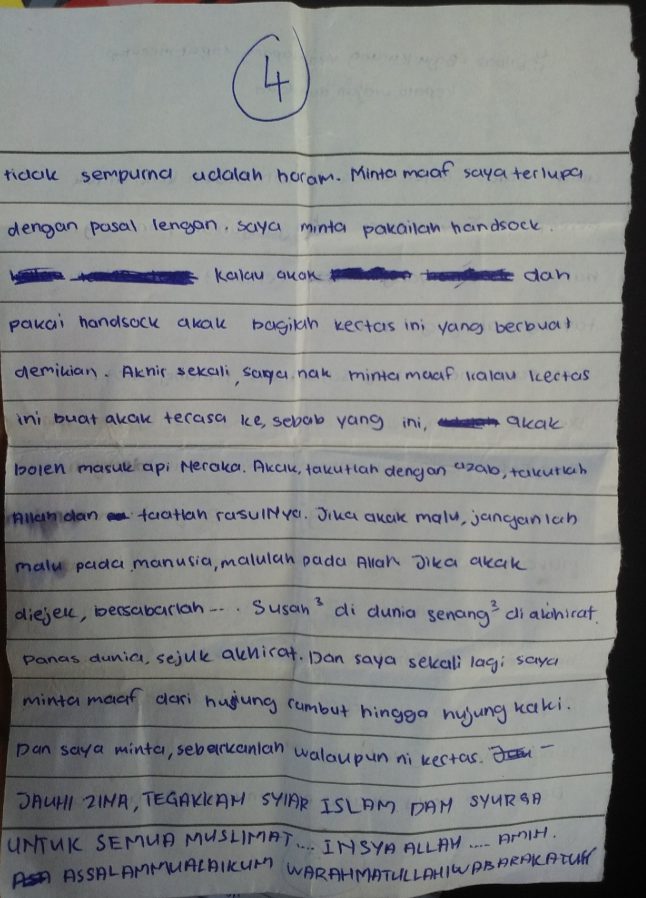 4
tidak sempurna adalah haram. Minta maaf saya terlupa
dengan pasal lengan. saya minta pakailah handsock.
kalau akak dan
pakai handsock akak bagilah kertas ini yang berbuat
demikian. Akhir sekali, saya nak minta maaf kalau kertas
ini buat akak terasa ke, sebab yang ini, akak
boleh masuk api Neraka. Akak, takutlah dengan azab, takutlah
Allah dan taatlah rasulNya. Jika akak malu, janganlah
malu pada manusia, malulah pada Allah Jika akak
diejek, bersabarlah --. Susah³ di dunia senang² di akhirat.
Panas dunia, sejuk akhirat. Dan saya sekali lagi saya
minta maaf dari hujung rambut hingga hujung kaki.
Dan saya minta, sebarkanlah walaupun ni kertas. -
JAUHI ZINA, TEGAKKAN SYIAR ISLAM DAN SYURGA
UNTUK SEMUA MUSLIMAT... INSYA ALLAH .... AMIN.
ASSALAMMUALAIKUM WARAHMATULLAHIWABARAKATUH